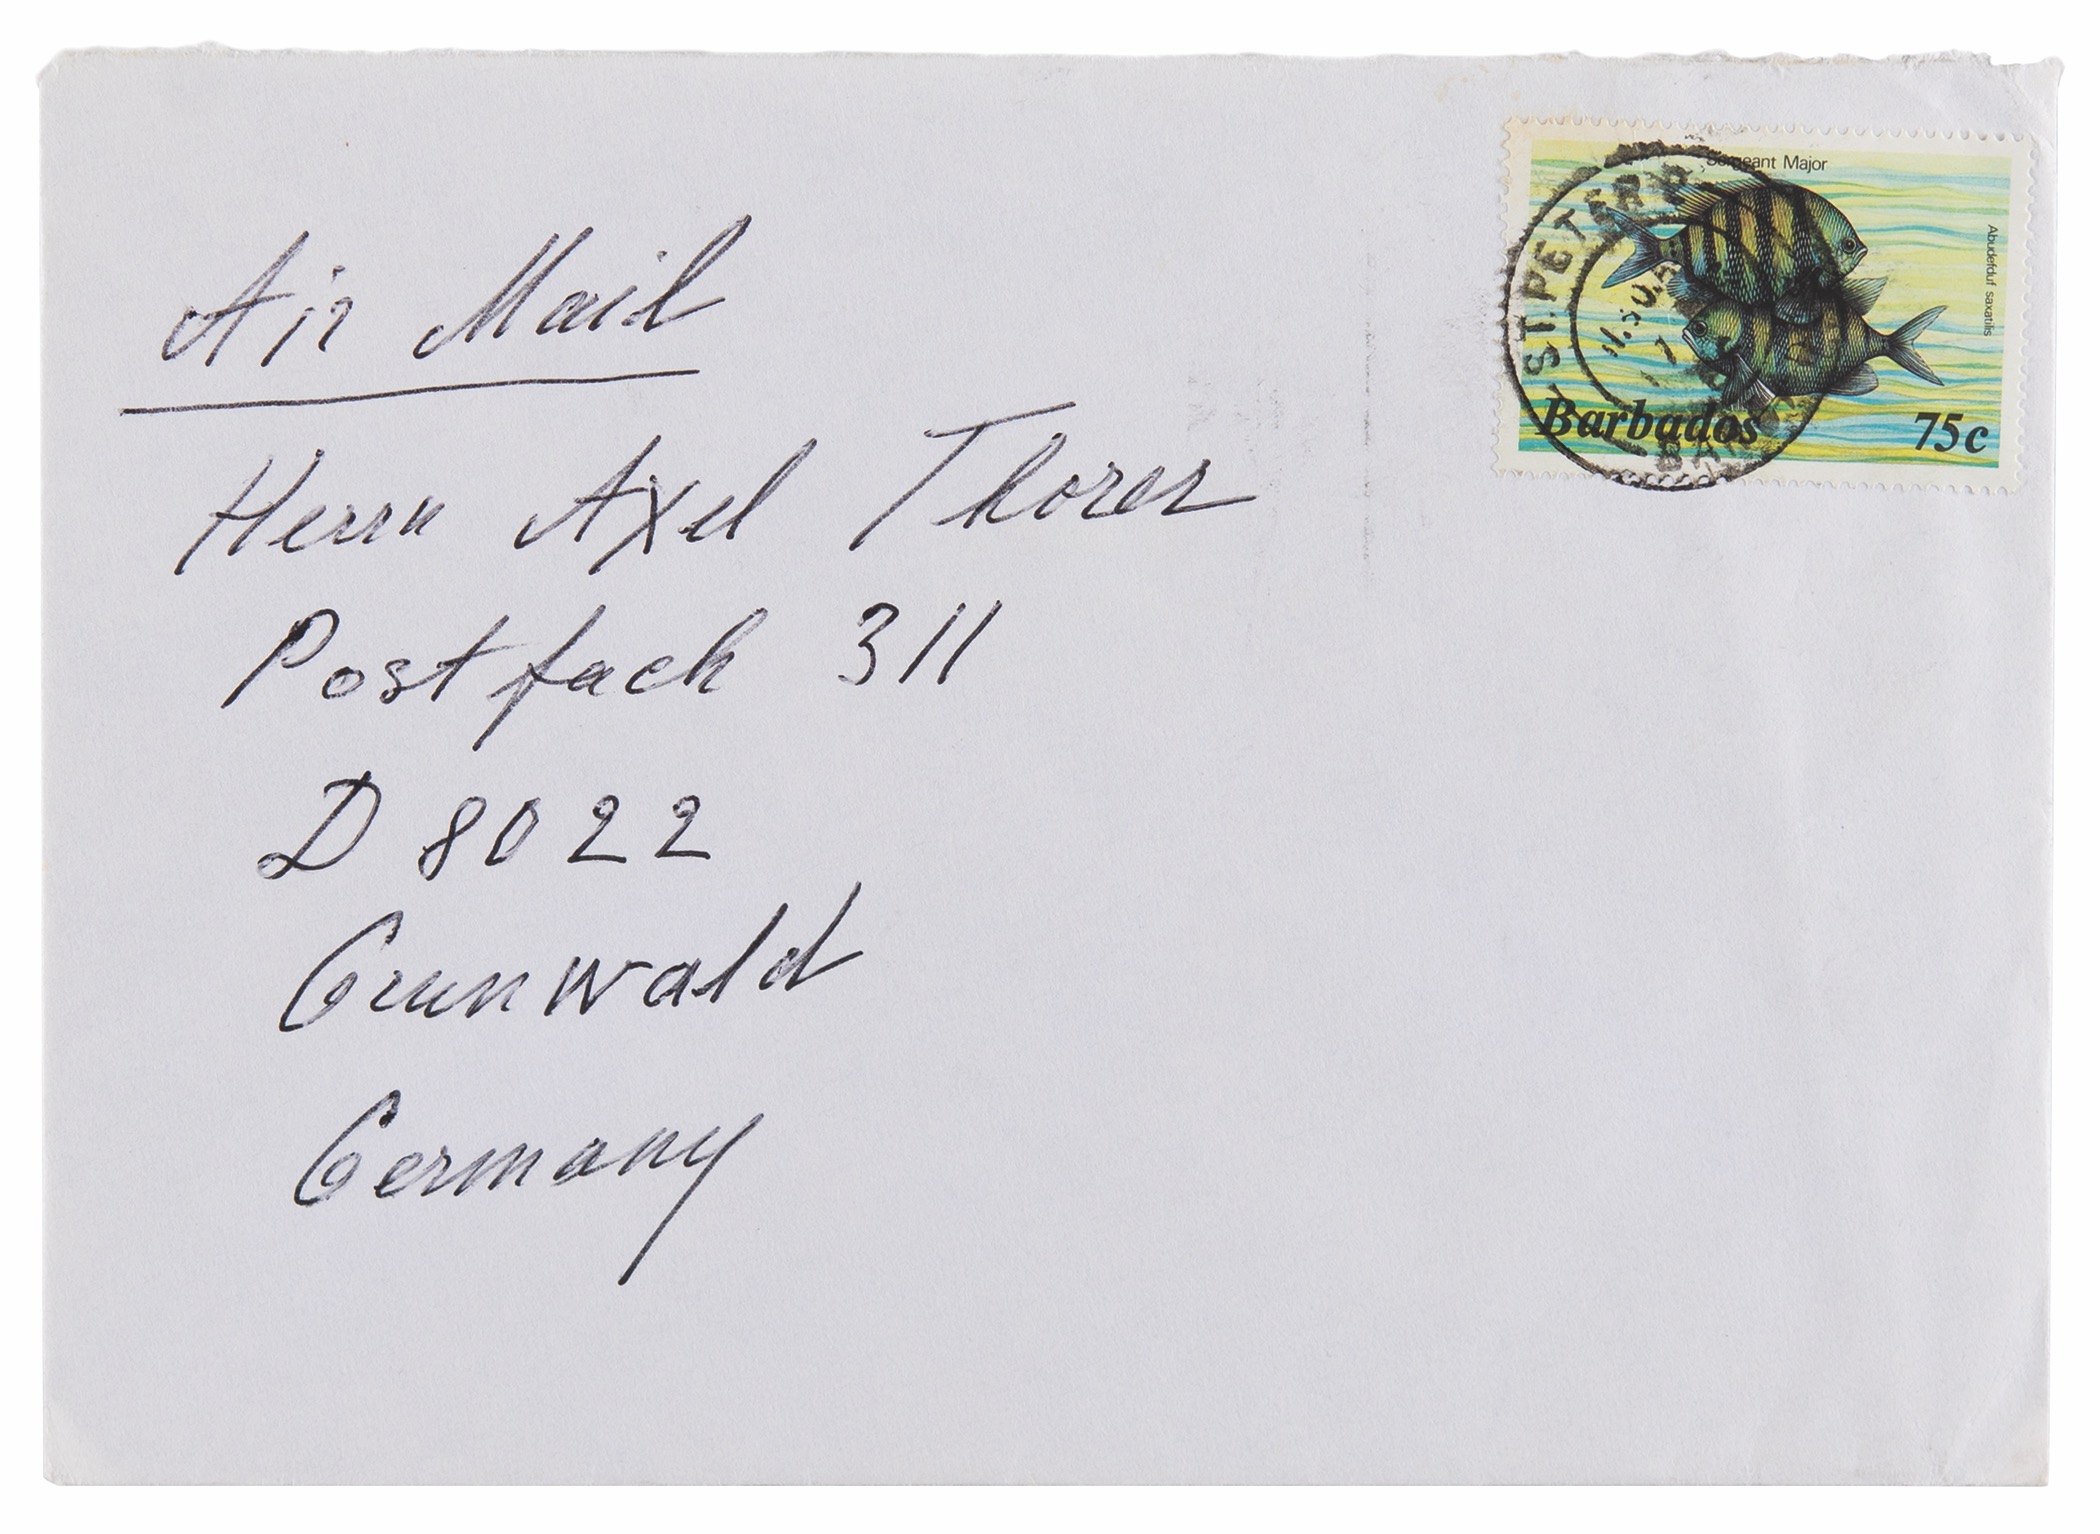 Air Mail
Herrn Axel Thorer
Postfach 311
D 8022
Grunwald
Germany
Sergeant Major
Abudefduf saxatilis
Barbados
75c
ST. PETER